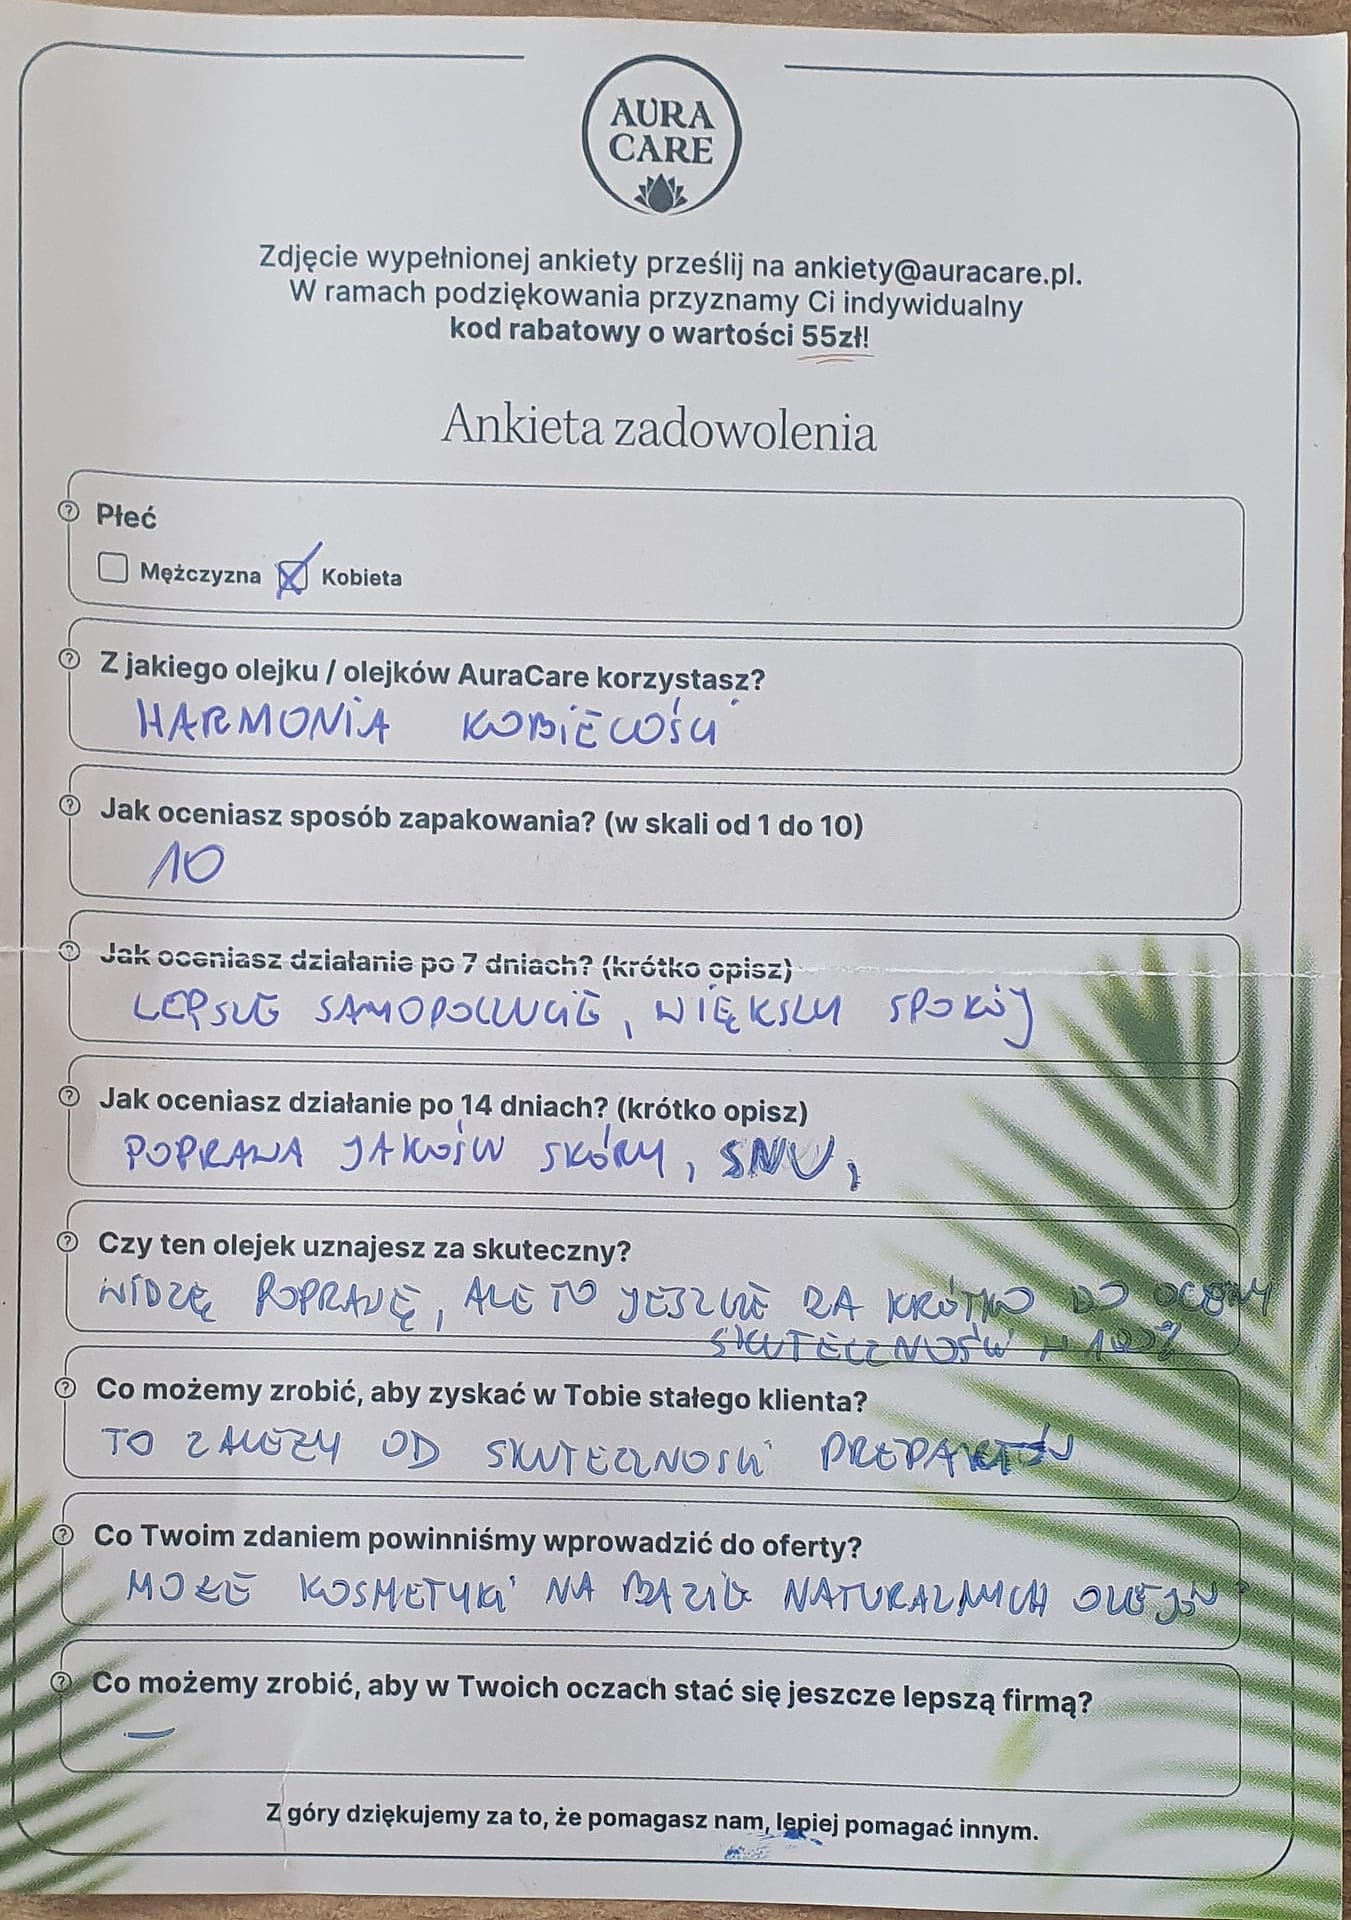 AURA
CARE
Zdjęcie wypełnionej ankiety prześlij na ankiety@auracare.pl.
W ramach podziękowania przyznamy Ci indywidualny
kod rabatowy o wartości 55zł!
Ankieta zadowolenia
Płeć
Mężczyzna Kobieta
Z jakiego olejku / olejków AuraCare korzystasz?
HARMONIA KOBIECOŚCI
Jak oceniasz sposób zapakowania? (w skali od 1 do 10)
10
Jak oceniasz działanie po 7 dniach? (krótko opisz)
LEPSZE SAMOPOCZUCIE, WIĘKSZY SPOKÓJ
Jak oceniasz działanie po 14 dniach? (krótko opisz)
POPRAWA JAKOŚCI SKÓRY, SNU,
Czy ten olejek uznajesz za skuteczny?
WIDZĘ POPRAWĘ, ALE TO JESZCZE ZA KRÓTKO DO OCENY
SKUTECZNOŚCI
Co możemy zrobić, aby zyskać w Tobie stałego klienta?
TO ZALEŻY OD SKUTECZNOŚCI
Co Twoim zdaniem powinniśmy wprowadzić do oferty?
MOŻE KOSMETYKI NA BAZIE NATURALNYCH OLEJÓW
Co możemy zrobić, aby w Twoich oczach stać się jeszcze lepszą firmą?
—
Z góry dziękujemy za to, że pomagasz nam, lepiej pomagać innym.